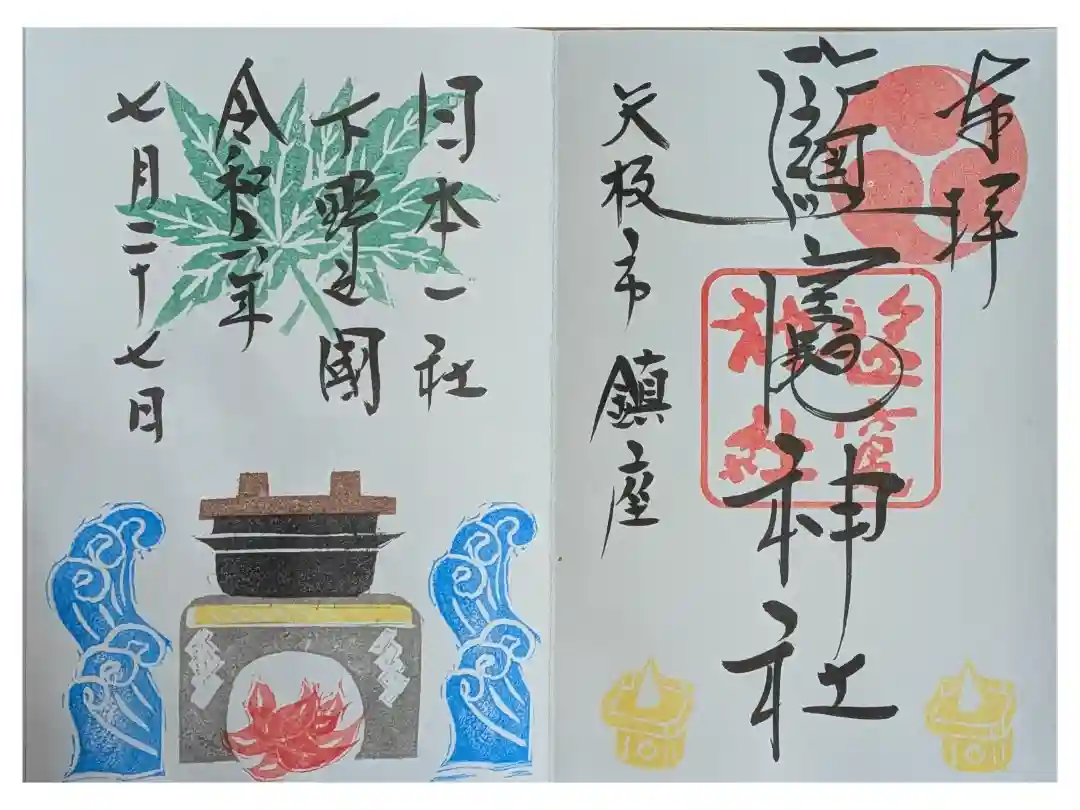 奉拝
鹽竈神社
矢板市 鎮座
日本一社
下野之國
令和二年
七月二十七日